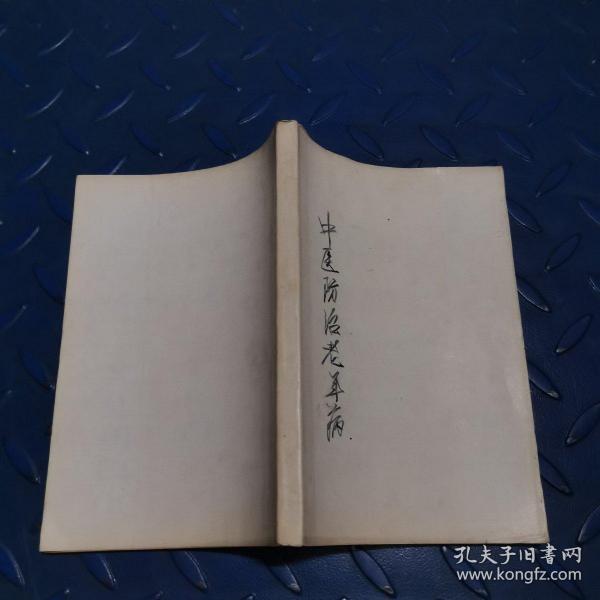 中医防治老年病.
孔夫子旧書网
www.kongfz.com